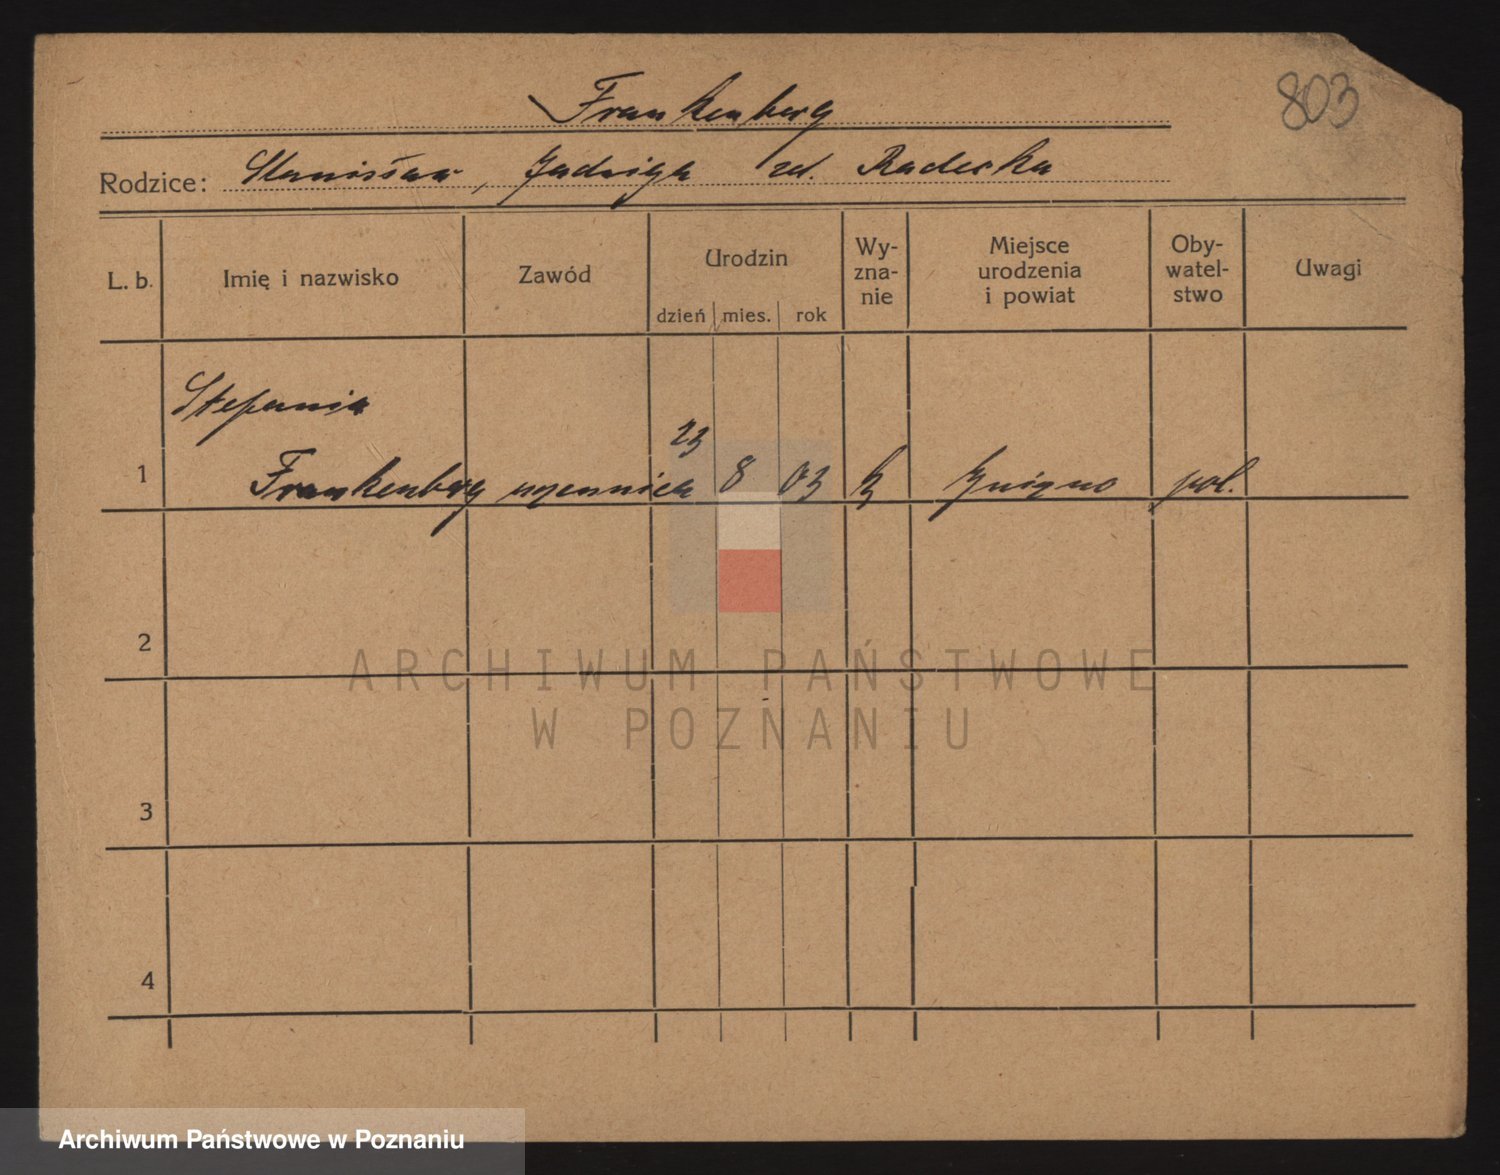 803
Frankenberg
Rodzice: Stanisław, Jadwiga zd. Radecka
L. b. Imię i nazwisko Zawód Urodzin dzień mies. rok Wy-zna-nie Miejsce urodzenia i powiat Oby-watel-stwo Uwagi
Stefania
1 Frankenberg uczennica 23 8 03 k Gniezno pol.
2
ARCHIWUM PAŃSTWOWE
W POZNANIU
3
4
Archiwum Państwowe w Poznaniu